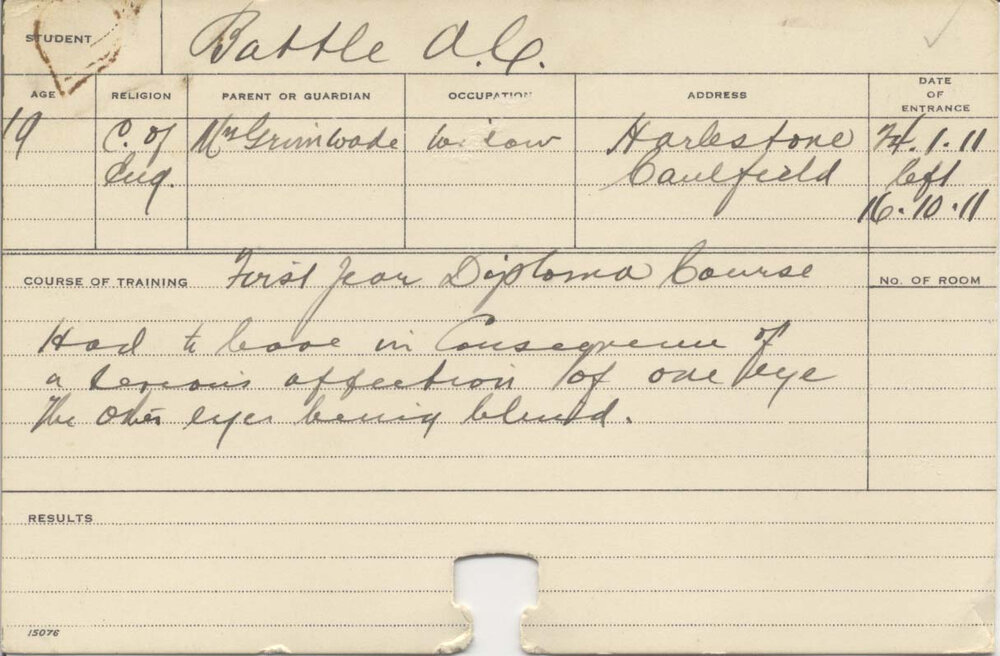 STUDENT Battle A.C.
AGE RELIGION PARENT OR GUARDIAN OCCUPATION ADDRESS DATE OF ENTRANCE
19 C. of Mrs Grimwade widow Harlestone 24.1.11
Eng. Caulfield left
16.10.11
COURSE OF TRAINING First Year Diploma Course NO. OF ROOM
Had to leave in Consequence of
a serious affection of one eye
The other eye being blind.
RESULTS
15076